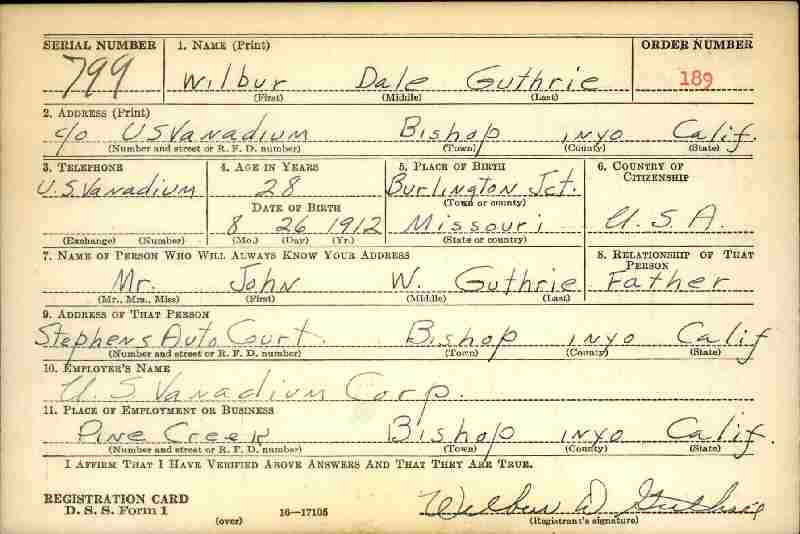 SERIAL NUMBER 1. NAME (Print) ORDER NUMBER
799 Wilbur Dale Guthrie 189
(First) (Middle) (Last)
2. ADDRESS (Print)
c/o USVanadium Bishop inyo Calif.
(Number and street or R. F. D. number) (Town) (County) (State)
3. TELEPHONE 4. AGE IN YEARS 5. PLACE OF BIRTH 6. COUNTRY OF CITIZENSHIP
U.S.Vanadium 28 Burlington Jct.
DATE OF BIRTH (Town or county)
8 26 1912 Missouri U.S.A.
(Exchange) (Number) (Mo.) (Day) (Yr.) (State or country)
7. NAME OF PERSON WHO WILL ALWAYS KNOW YOUR ADDRESS 8. RELATIONSHIP OF THAT PERSON
Mr. John W. Guthrie Father
(Mr., Mrs., Miss) (First) (Middle) (Last)
9. ADDRESS OF THAT PERSON
Stephens Auto Court. Bishop inyo Calif
(Number and street or R. F. D. number) (Town) (County) (State)
10. EMPLOYER'S NAME
U.S Vanadium Corp.
11. PLACE OF EMPLOYMENT OR BUSINESS
Pine Creek Bishop inyo Calif.
(Number and street or R. F. D. number) (Town) (County) (State)
I AFFIRM THAT I HAVE VERIFIED ABOVE ANSWERS AND THAT THEY ARE TRUE.
REGISTRATION CARD
D. S. S. Form 1 Wilbur D. Guthrie
(over) 16—17105 (Registrant's signature)